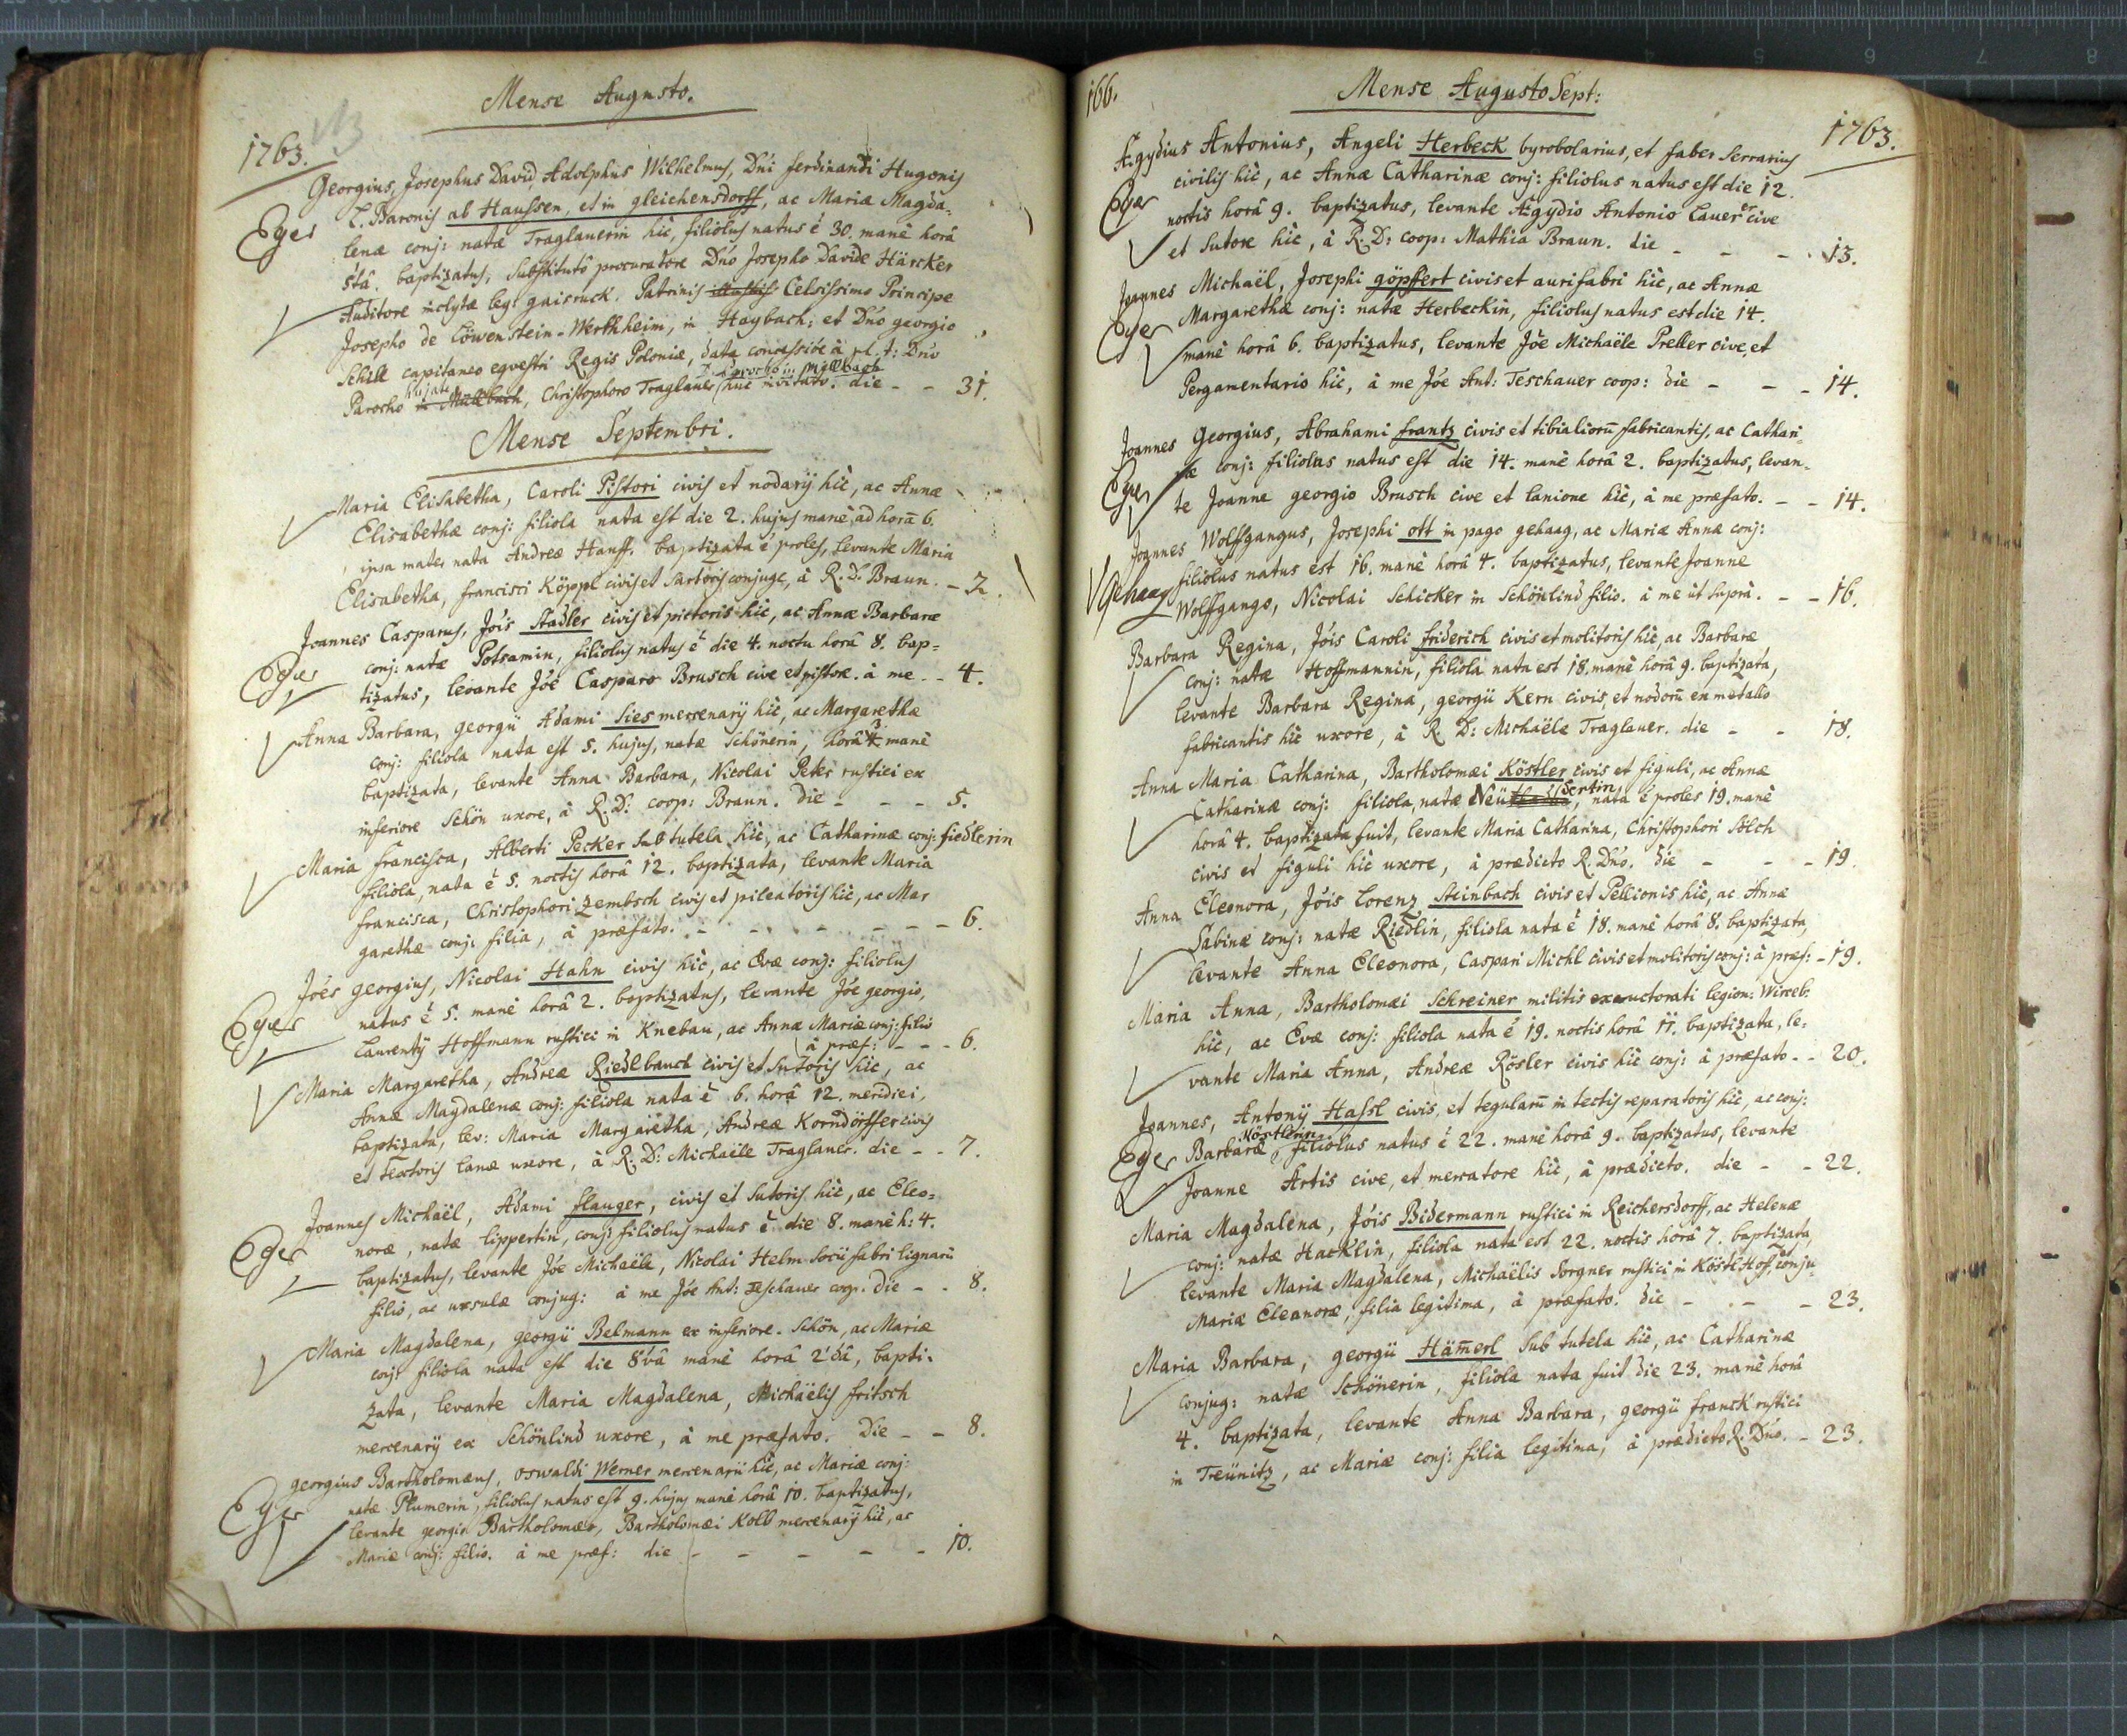 Mense Augusto.
1763.
Georgius, Josephus David Adolphus Wilhelmus, Dn̄i ferdinandi Hugonis
L. Baronis ab Haussen, et in gleichensdorff, ac Mariæ Magda-
Eger
lenæ conj: natæ Traglauerin hìc, filiolus natus ē 30. manè horâ
5tâ. baptizatus, substitutô procuratore Dn̄o Josepho Davide Härcker
Auditore inclytæ leg: gaisruck. Patrinis Celsissimo Principe
Josepho de Löwenstein-Werthheim, in Haybach; et Dn̄o georgio
Schill capitaneo equestri Regis Poloniæ, data concessiōe à pl. t: Dn̄o
hujate parocho in Müllbach
Parocho in Müllbach, Christophoro Traglauer huc invitato. die - - 31.
Mense Septembri.
Maria Elisabetha, Caroli Pistori civis et nodarij hìc, ac Annæ
Elisabethæ conj: filiola nata est die 2. hujus manè, ad horā 6.
ipsa mater nata Andreæ Hanff. baptizata ē proles, levante Maria
Elisabetha, francisci Köppl civis et Sartoris conjuge, à R. D. Braun. - 2.
Joannes Casparus, Jōis Stadler civis et pictoris hìc, ac Annæ Barbaræ
Eger
conj: natæ Potsamin, filiolus natus ē die 4. noctu horâ 8. bap=
tizatus, levante Jōe Casparo Brusch cive et pistore. à me - - 4.
Anna Barbara, georgii Adami Sies mercenarij hìc, ac Margarethæ
conj: filiola nata est 5. hujus, natæ Schönerin, horâ 3 manè
baptizata, levante Anna Barbara, Nicolai Peter rustici ex
inferiore Schön uxore, à R. D: coop: Braun. die - - - 5.
Maria francisca, Alberti Pecker sub tutela hìc, ac Catharinæ conj: fiedlerin
filiola, nata ē 5. noctis horâ 12. baptizata, levante Maria
francisca, Christophori Zembsch civis et pileatoris hìc, ac Mar
garethæ conj: filia, à præfato. - - - - - - 6.
Joēs georgius, Nicolai Hahn civis hìc, ac Evæ conj: filiolus
Eger
natus ē 5. manè horâ 2. baptizatus, levante Jōe georgio,
Laurentij Hoffmann rustici in Knebau, ac Annæ Mariæ conj: filio
à præf: - - - 6.
Maria Margaretha, Andreæ Riedlbauch civis et Sutoris hìc, ac
Annæ Magdalenæ conj: filiola nata ē 6. horâ 12. meridiei,
baptizata, lev: Maria Margaretha, Andreæ Korndörffer civis
et textoris lanæ uxore, à R. D: Michaële Traglauer. die - - 7.
Joannes Michaël, Adami flauger, civis et Sutoris hìc, ac Eleo=
Eger
noræ, natæ lippertin, conj: filiolus natus ē die 8. manè h: 4.
baptizatus, levante Jōe Michaële, Nicolai Helm Socii fabri lignarii
filio, ac ursulæ conjug: à me Jōe Ant: Teschauer coop. die - - 8.
Maria Magdalena, georgii Belmann ex inferiore Schön, ac Mariæ
conj: filiola nata est die 8vâ manè horâ 2dâ, bapti-
zata, levante Maria Magdalena, Michaëlis fritsch
mercenarij ex Schönlind uxore, à me præfato. Die - - 8.
georgius Bartholomæus, oswaldi Werner mercenarii hìc, ac Mariæ conj:
Eger
natæ Plumerin, filiolus natus est 9. hujus manè horâ 10. baptizatus,
levante georgio Bartholomæo, Bartholomæi Kolb mercenarij hìc, ac
Mariæ conj: filio. à me præf: die - - - - - 10.
166.
Mense Augusto Sept:
1763.
Ægydius Antonius, Angeli Herbeck byrobolarius, et faber Serrarius
civilis hìc, ac Annæ Catharinæ conj: filiolus natus est die 12.
Eger
noctis horâ 9. baptizatus, levante Ægydio Antonio Lauerer cive
et Sutore hìc, à R. D: coop: Mathia Braun. die - - - 13.
Joannes Michaël, Josephi göpffert civis et aurifabri hìc, ac Annæ
Eger
Margarethæ conj: natæ Herbeckin, filiolus natus est die 14.
manè horâ 6. baptizatus, levante Jōe Michaële Preller cive, et
Pergamentario hìc, à me Jōe Ant: Teschauer coop: die - - - 14.
Joannes Georgius, Abrahami frantz civis et tibialiorū fabricantis, ac Cathari=
Eger
næ conj: filiolus natus est die 14. manè horâ 2. baptizatus, levan=
te Joanne georgio Brusch cive et lanione hìc, à me præfato. - - 14.
Joannes Wolffgangus, Josephi ott in pago gehaag, ac Mariæ Annæ conj:
Gehaag
filiolus natus est 16. manè horâ 4. baptizatus, levante Joanne
Wolffgango, Nicolai Schicker in Schönlind filio. à me ût suprà. - - 16.
Barbara Regina, Jōis Caroli friderich civis et molitoris hìc, ac Barbaræ
conj: natæ Hoffmannin, filiola nata est 18. manè horâ 9. baptizata,
levante Barbara Regina, georgii Kern civis, et nodorū ex metallo
fabricantis hìc uxore, à R. D: Michaële Traglauer. die - - 18.
Anna Maria Catharina, Bartholomæi Köstler civis et figuli, ac Annæ
Catharinæ conj: filiola, natæ Neübertin, nata ē proles 19. manè
horâ 4. baptizata fuit, levante Maria Catharina, Christophori Sölch
civis et figuli hìc uxore, à prædicto R. Dn̄o. die - - - 19.
Anna Eleonora, Jōis Lorenz Steinbach civis et Pellionis hìc, ac Annæ
Sabinæ conj: natæ Riedlin, filiola nata ē 18. manè horâ 8. baptizata,
levante Anna Eleonora, Caspari Michl civis et molitoris conj: à præf: - 19.
Maria Anna, Bartholomæi Schreiner militis exauctorati legion: Wirceb:
hìc, ac Evæ conj: filiola nata ē 19. noctis horâ 11. baptizata, le-
vante Maria Anna, Andreæ Rösler civis hìc conj: à præfato - - 20.
Joannes, Antonij Hassl civis, et tegularū in tectis reparatoris hìc, ac conj:
Köstlerin
Eger
Barbaræ, filiolus natus ē 22. manè horâ 9. baptizatus, levante
Joanne Artis cive, et mercatore hìc, à prædicto. die - - 22.
Maria Magdalena, Jōis Bidermann rustici in Reichersdorff, ac Helenæ
conj: natæ Hacklin, filiola nata est 22. noctis horâ 7. baptizata,
levante Maria Magdalena, Michaëlis Sorgner rustici in Köstl Hoff, conju-
Mariæ Eleanoræ, filia legitima, à præfato. die - - - 23.
Maria Barbara, georgii Häm̄erl sub tutela hìc, ac Catharinæ
conjug: natæ Schönerin, filiola nata fuit die 23. manè horâ
4. baptizata, levante Anna Barbara, georgii franck rustici
in Treünitz, ac Mariæ conj: filia legitima, à prædicto R. Dn̄o. - 23.